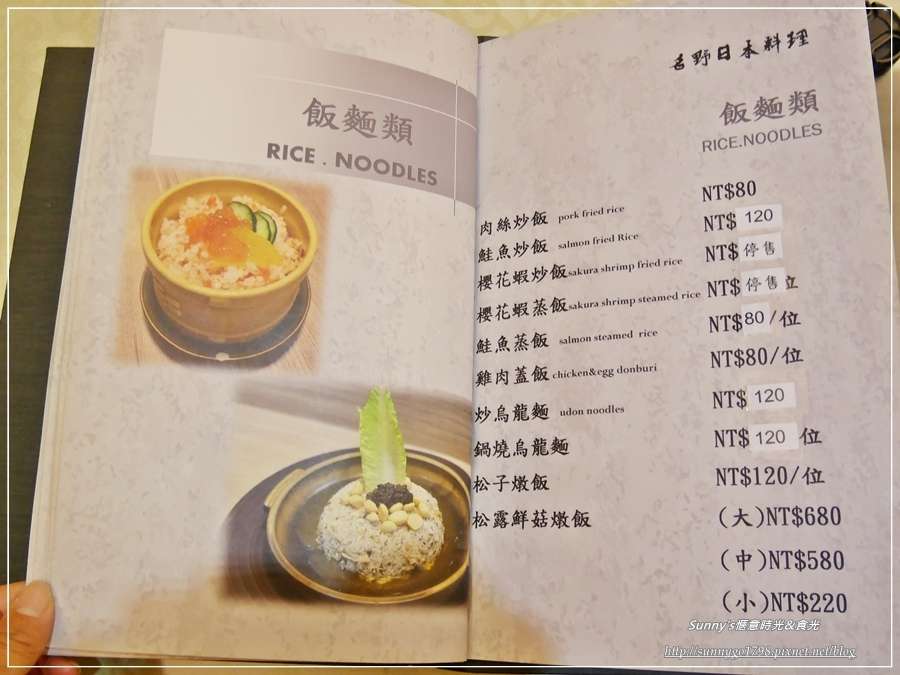 飯麵類
RICE . NOODLES
名野日本料理
飯麵類
RICE.NOODLES
肉絲炒飯 pork fried rice NT$80
鮭魚炒飯 salmon fried Rice NT$ 120
櫻花蝦炒飯 sakura shrimp fried rice NT$ 停售
櫻花蝦蒸飯 sakura shrimp steamed rice NT$ 停售 位
鮭魚蒸飯 salmon steamed rice NT$80/位
雞肉蓋飯 chicken&egg donburi NT$80/位
炒烏龍麵 udon noodles NT$ 120
鍋燒烏龍麵 NT$ 120 位
松子燉飯 NT$120/位
松露鮮菇燉飯 (大)NT$680
(中)NT$580
(小)NT$220
Sunny's愜意時光&食光
http://sunnygo1798.pixnet.net/blog